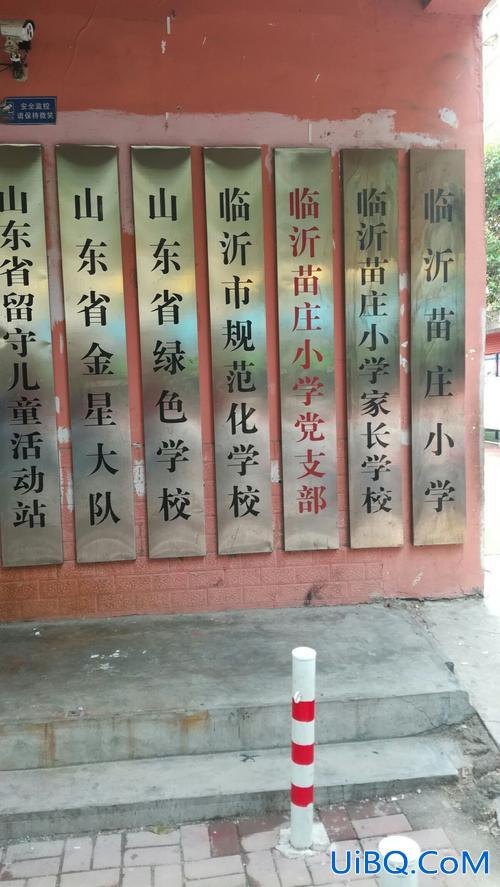 安全监控
请保持微笑
临沂苗庄小学
临沂苗庄小学家长学校
临沂苗庄小学党支部
临沂市规范化学校
山东省绿色学校
山东省金星大队
山东省留守儿童活动站
UiBQ.CoM